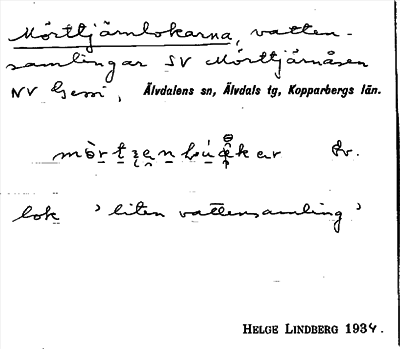 Mörttjärnlokarna, vatten-
samlingar SV Mörttjärnåsen
NV Gessi, Älvdalens sn, Älvdals tg, Kopparbergs län.
lok 'liten vattensamling'
HELGE LINDBERG 1934.